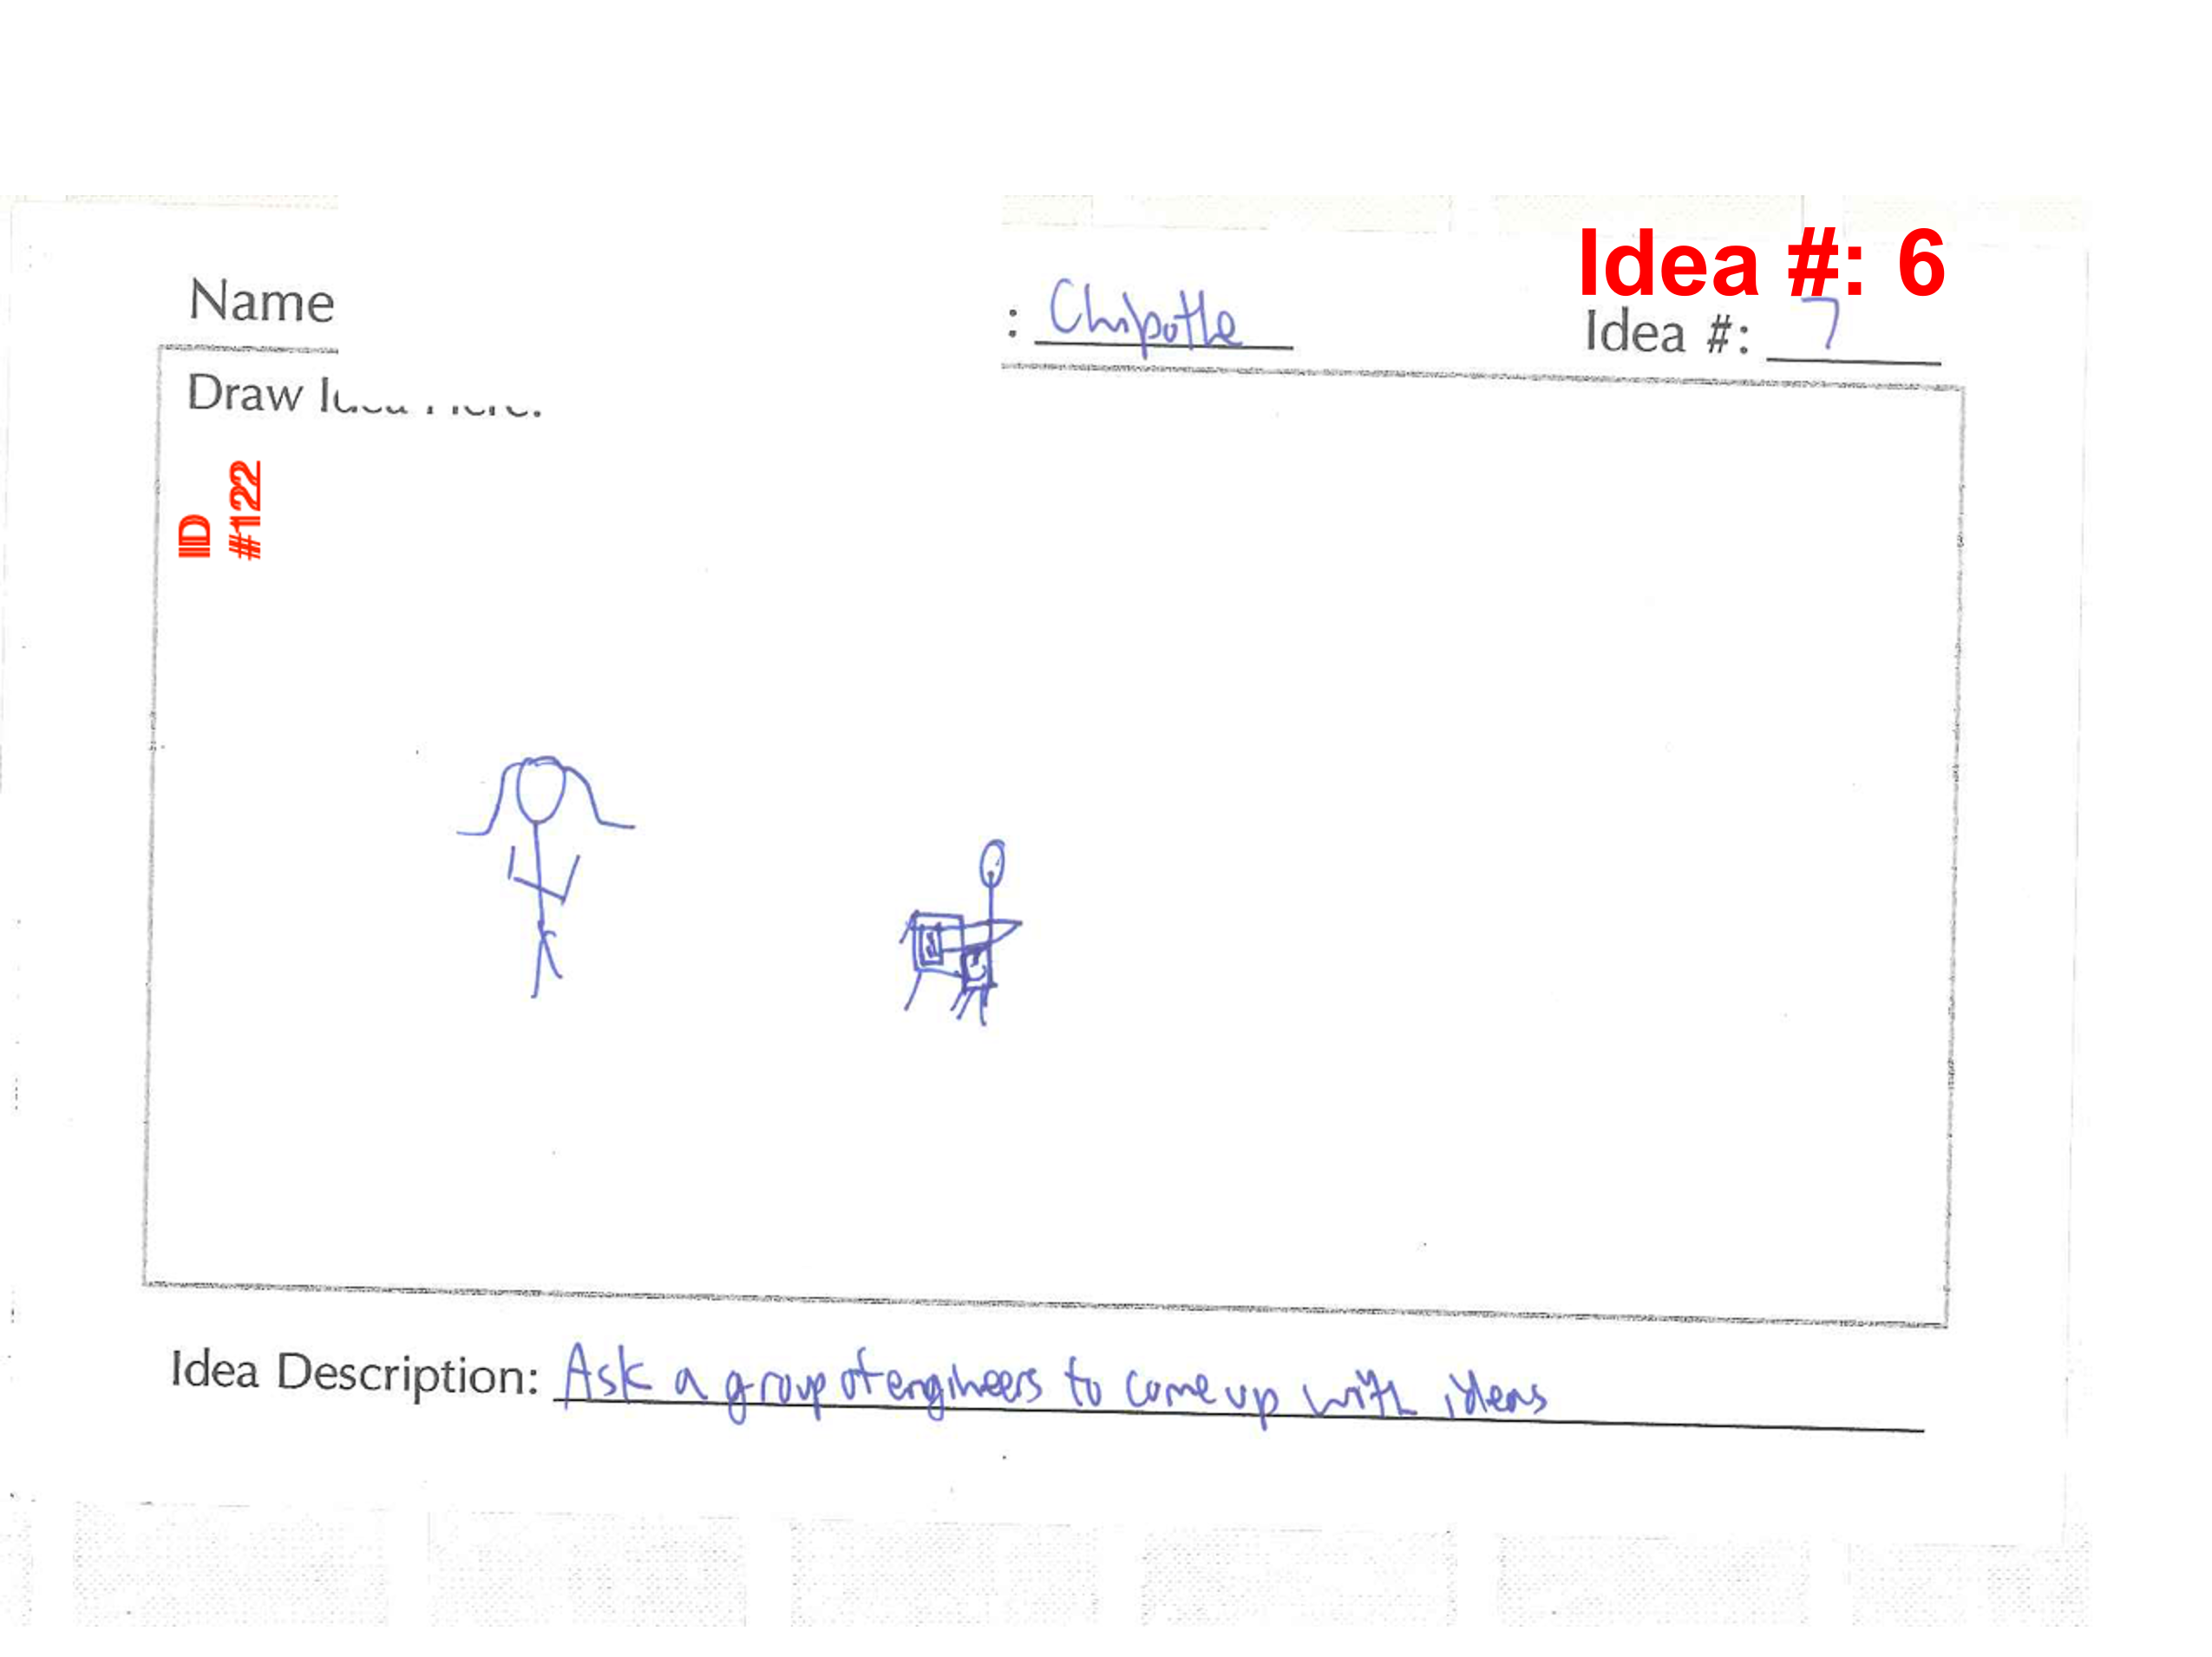 Idea #: 6
Name : Chipotle Idea #: 7
Draw Idea Here:
ID
#122
Idea Description: Ask a group of engineers to come up with ideas